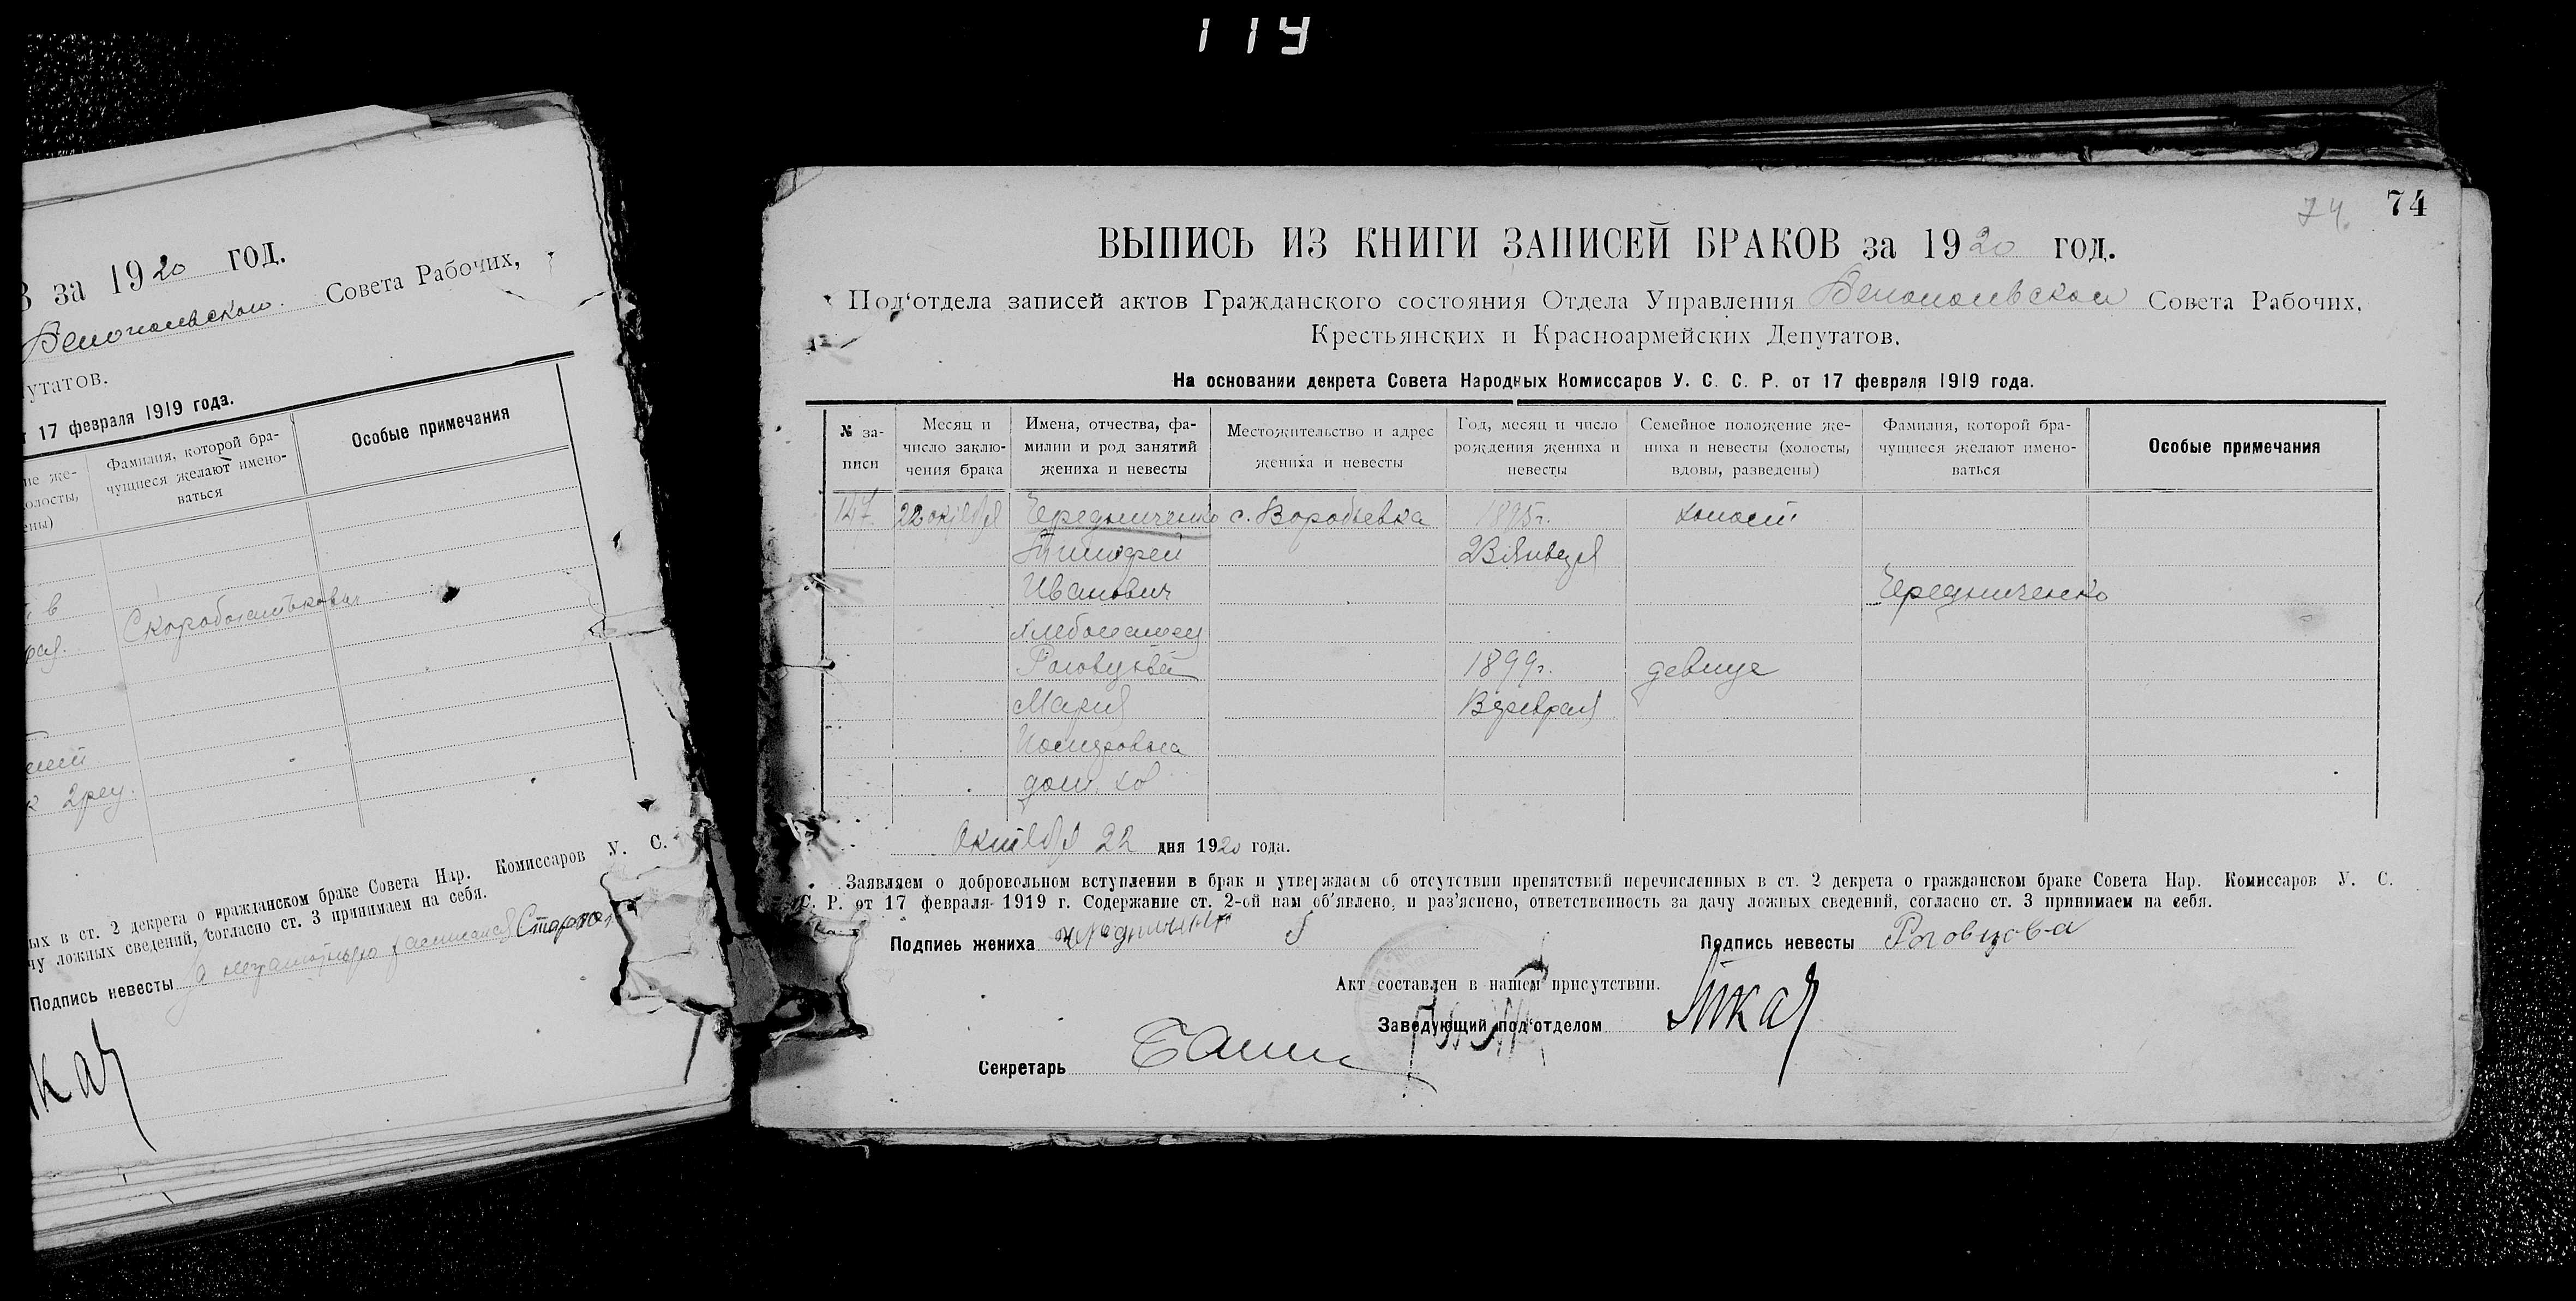 119
в за 1920 год.
Белопольском Совета Рабочих,
утатов.
т 17 февраля 1919 года.
ие же-
олосты,
ены)
Фамилия, которой бра-
чущиеся желают имено-
ваться
Особые примечания
ых в ст. 2 декрета о гражданском браке Совета Нар. Комиссаров У. С.
чу ложных сведений, согласно ст. 3 принимаем на себя.
Подпись невесты
74
74.
ВЫПИСЬ ИЗ КНИГИ ЗАПИСЕЙ БРАКОВ за 1920 год.
Под'отдела записей актов Гражданского состояния Отдела Управления Белопольском Совета Рабочих,
Крестьянских и Красноармейских Депутатов.
На основании декрета Совета Народных Комиссаров У. С. С. Р. от 17 февраля 1919 года.
№ за-
писи
Месяц и
число заклю-
чения брака
Имена, отчества, фа-
милии и род занятий
жениха и невесты
Местожительство и адрес
жениха и невесты
Год, месяц и число
рождения жениха и
невесты
Семейное положение же-
ниха и невесты (холосты,
вдовы, разведены)
Фамилия, которой бра-
чущиеся желают имено-
ваться
Особые примечания
147. 22 октября Чередниченко с. Воробьевка 1895г. холост
Тимофей Января
Иванович Чередниченко
хлебопашец
Роговцова 1899г. девица
Мария февраля
дом. хоз
Октября 22 дня 1920 года.
Заявляем о добровольном вступлении в брак и утверждаем об отсутствии препятствий перечисленных в ст. 2 декрета о гражданском браке Совета Нар. Комиссаров У. С.
С. Р. от 17 февраля 1919 г. Содержание ст. 2-ой нам об'явлено, и раз'яснено, ответственность за дачу ложных сведений, согласно ст. 3 принимаем на себя.
Подпись жениха Чередниченко Подпись невесты Роговцова
Акт составлен в нашем присутствии.
Заведующий под'отделом Ткач
Секретарь